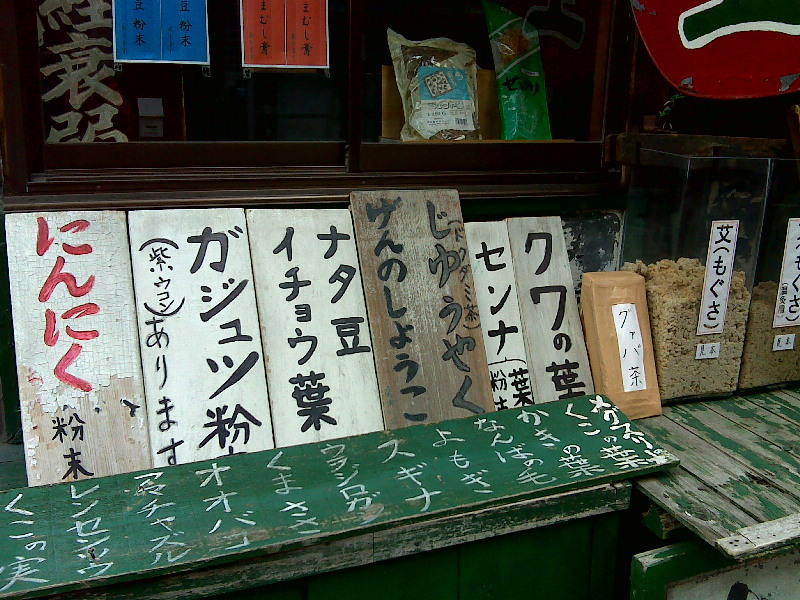 経衰弱
豆粉末
まむし膏
にんにく
粉末
ガジュツ粉
(紫ウコン)あります
ナタ豆
イチョウ葉
じゅうやく
(ドクダミ茶)
げんのしょうこ
センナ
葉
粉末
クワの葉
グァバ茶
艾(もぐさ)
見本
見本
くこの葉
かきの葉
なんばの毛
よもぎ
スギナ
ウラジロガシ
くまざさ
オオバコ
アマチャズル
レンセンソウ
くこの実